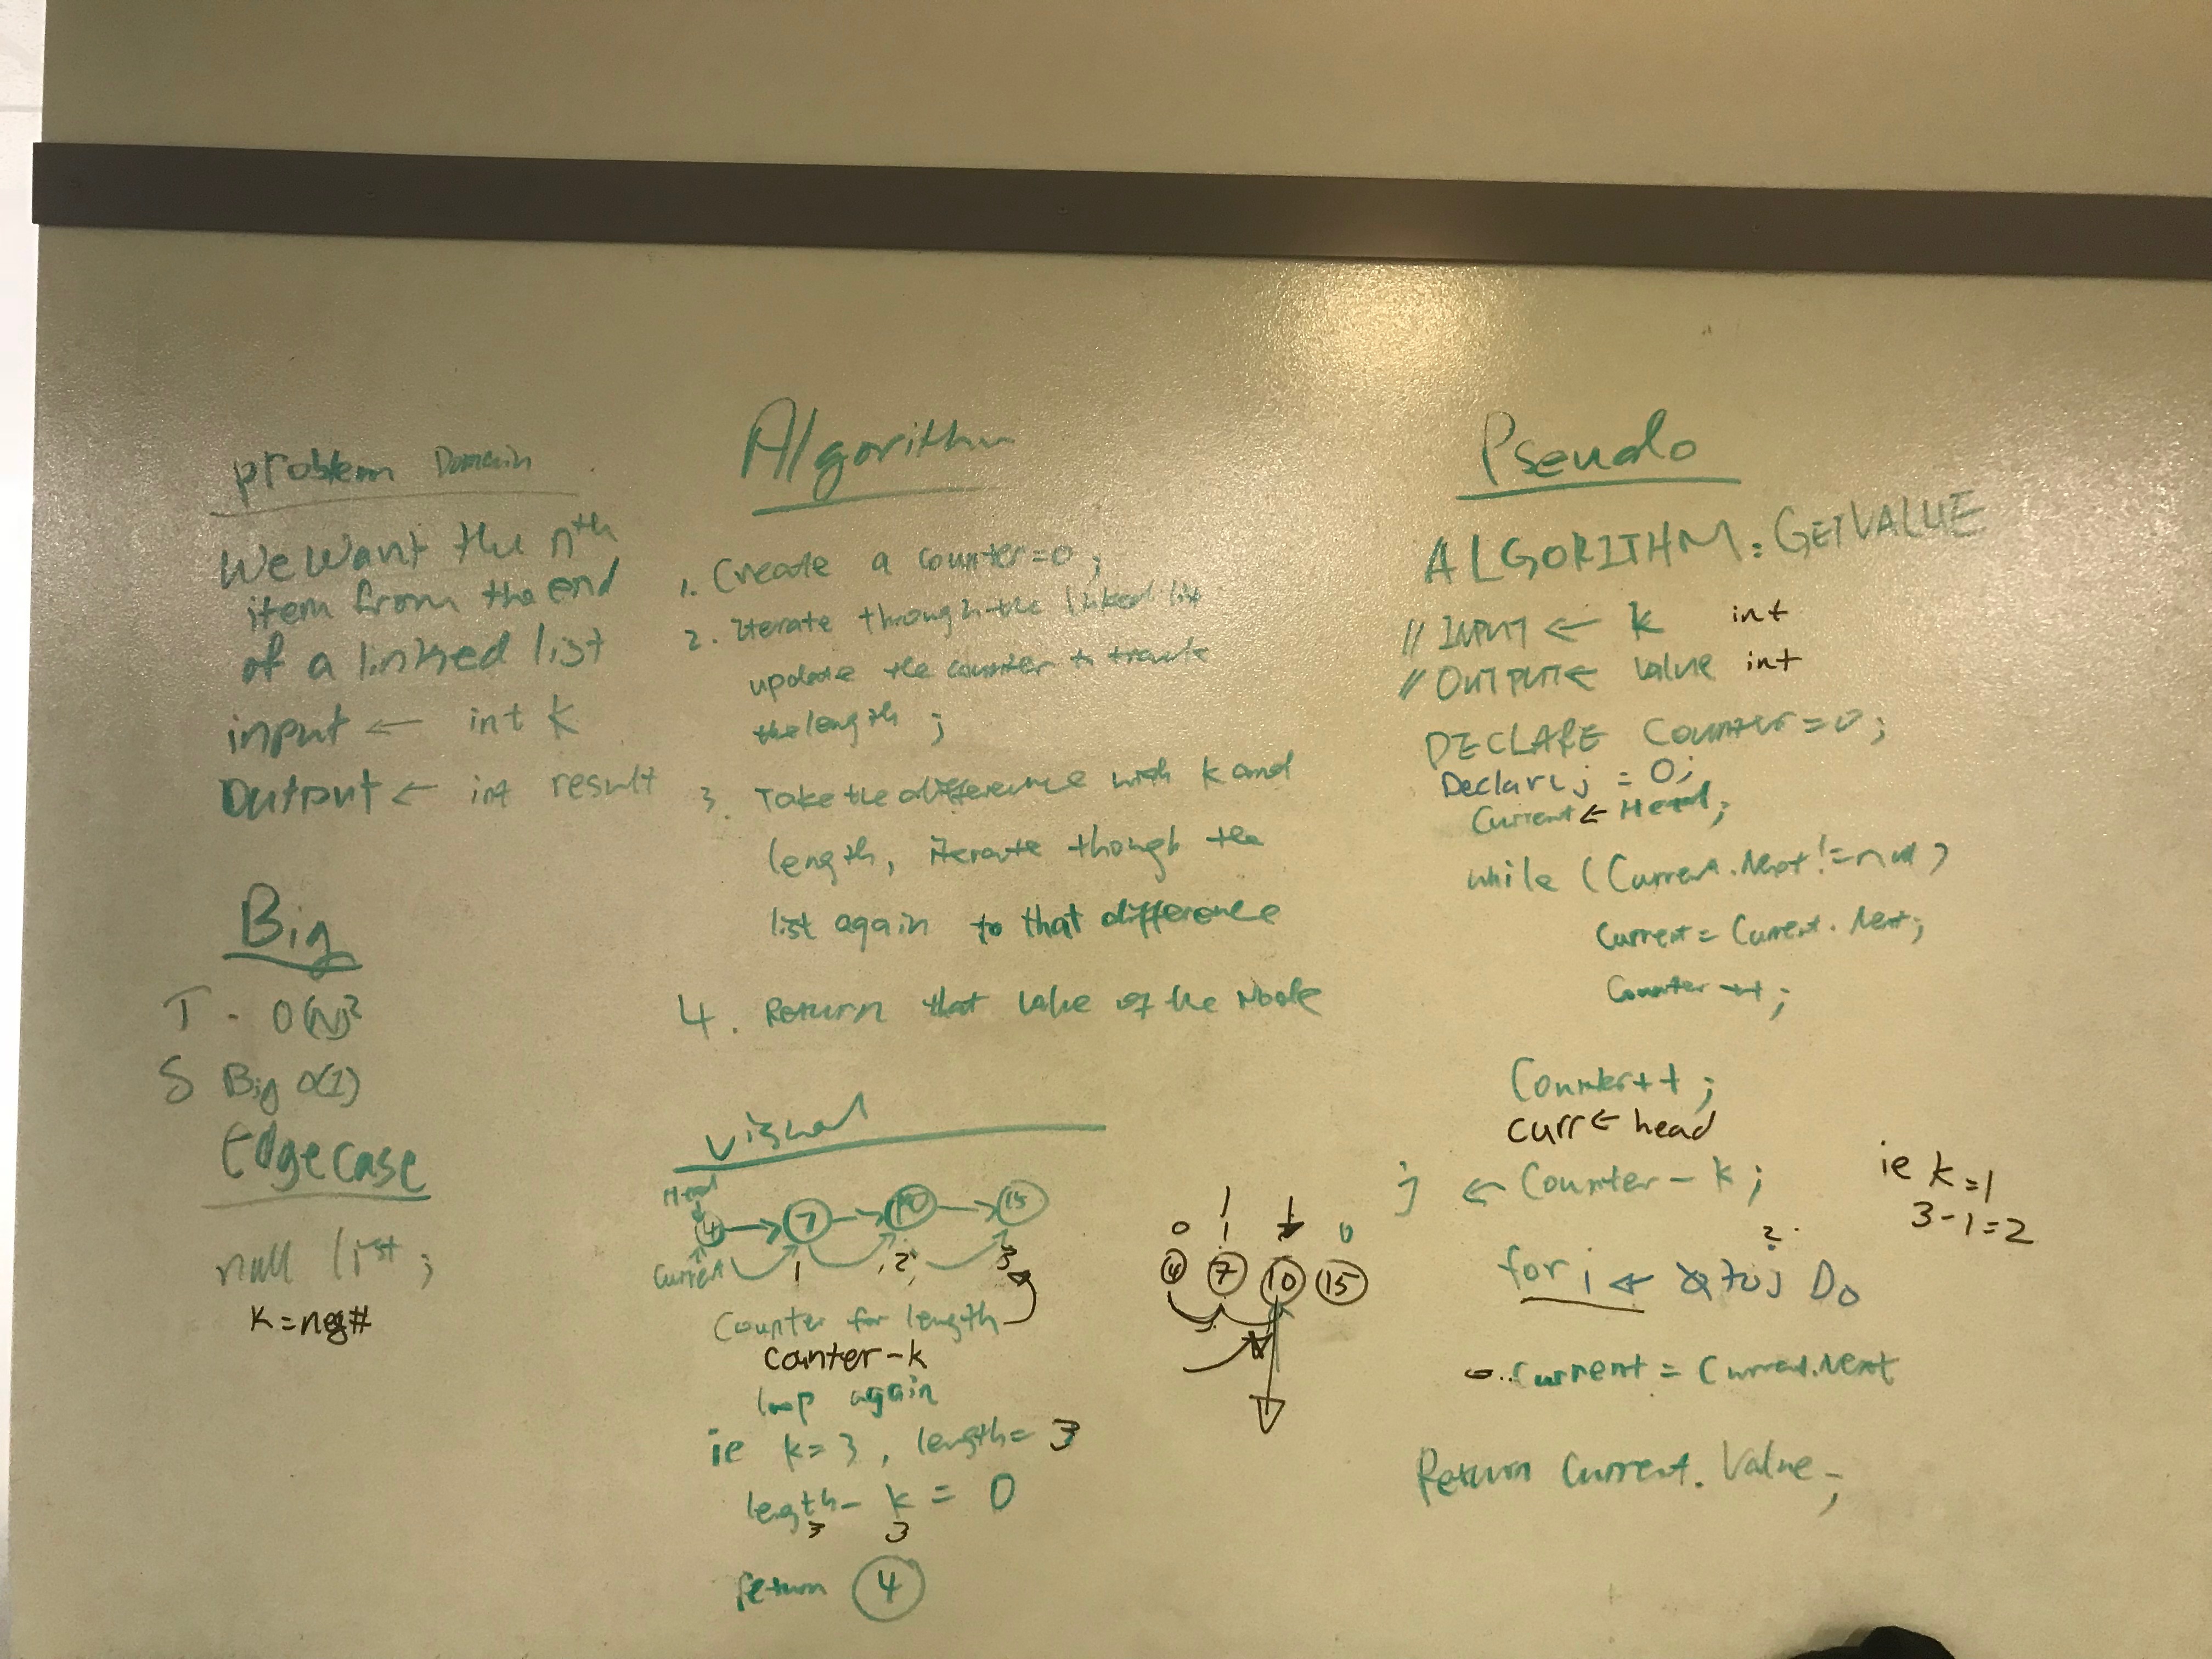 Problem Domain
We want the nth
item from the end
of a linked list
input ← int k
Output ← int result
Big
T - O(N)²
S Big O(1)
Edge case
null list;
K = neg#
Algorithm
1. Create a counter=0;
2. Iterate through the linked list
update the counter to
the length;
3. Take the difference with k and
length, iterate though the
list again to that difference
4. Return that value of the Node
Visual
Head
4 → 7 → 10 → 15
Current 1 2 3
Counter for length
counter-k
loop again
ie k=3, length= 3
length - k = 0
3 3
return 4
0 1 0
4 7 10 15
Pseudo
ALGORITHM: GETVALUE
// INPUT ← k int
// OUTPUT ← value int
DECLARE Counter=0;
Declare j = 0;
Current ← Head;
while (Current.Next != null)
Current = Current.Next;
Counter ++;
Counter++;
curr ← head
j ← Counter - k;
ie k=1
3-1=2
2
for i ← to j Do
Current = Current.Next
Return Current.Value;